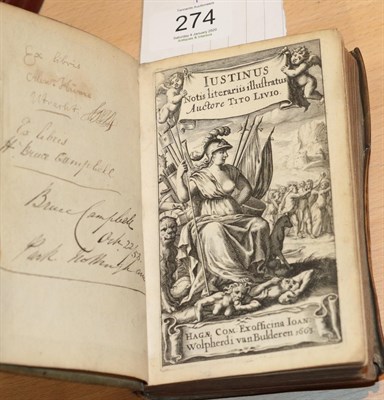 274
Ex libris
Utrecht
Ex libris
H. Bruce Campbell
Bruce Campbell
Park
IUSTINUS
Notis literariis illustratus
Auctore TITO LIVIO.
HAGÆ COM. Ex officina IOAN:
Wolpherdi van Bulderen 1663